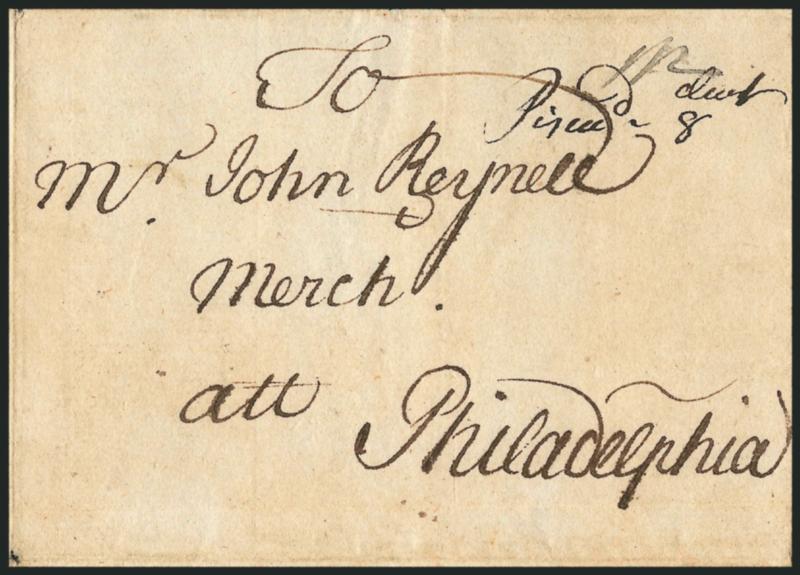 To
dwt
Piscad 8
Mr. John Reynell
Merch.
att
Philadelphia